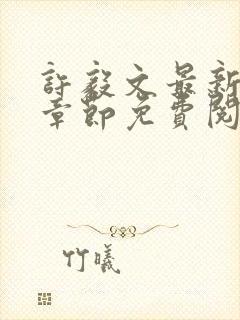 許毅文最新
章節免費閱
竹曦